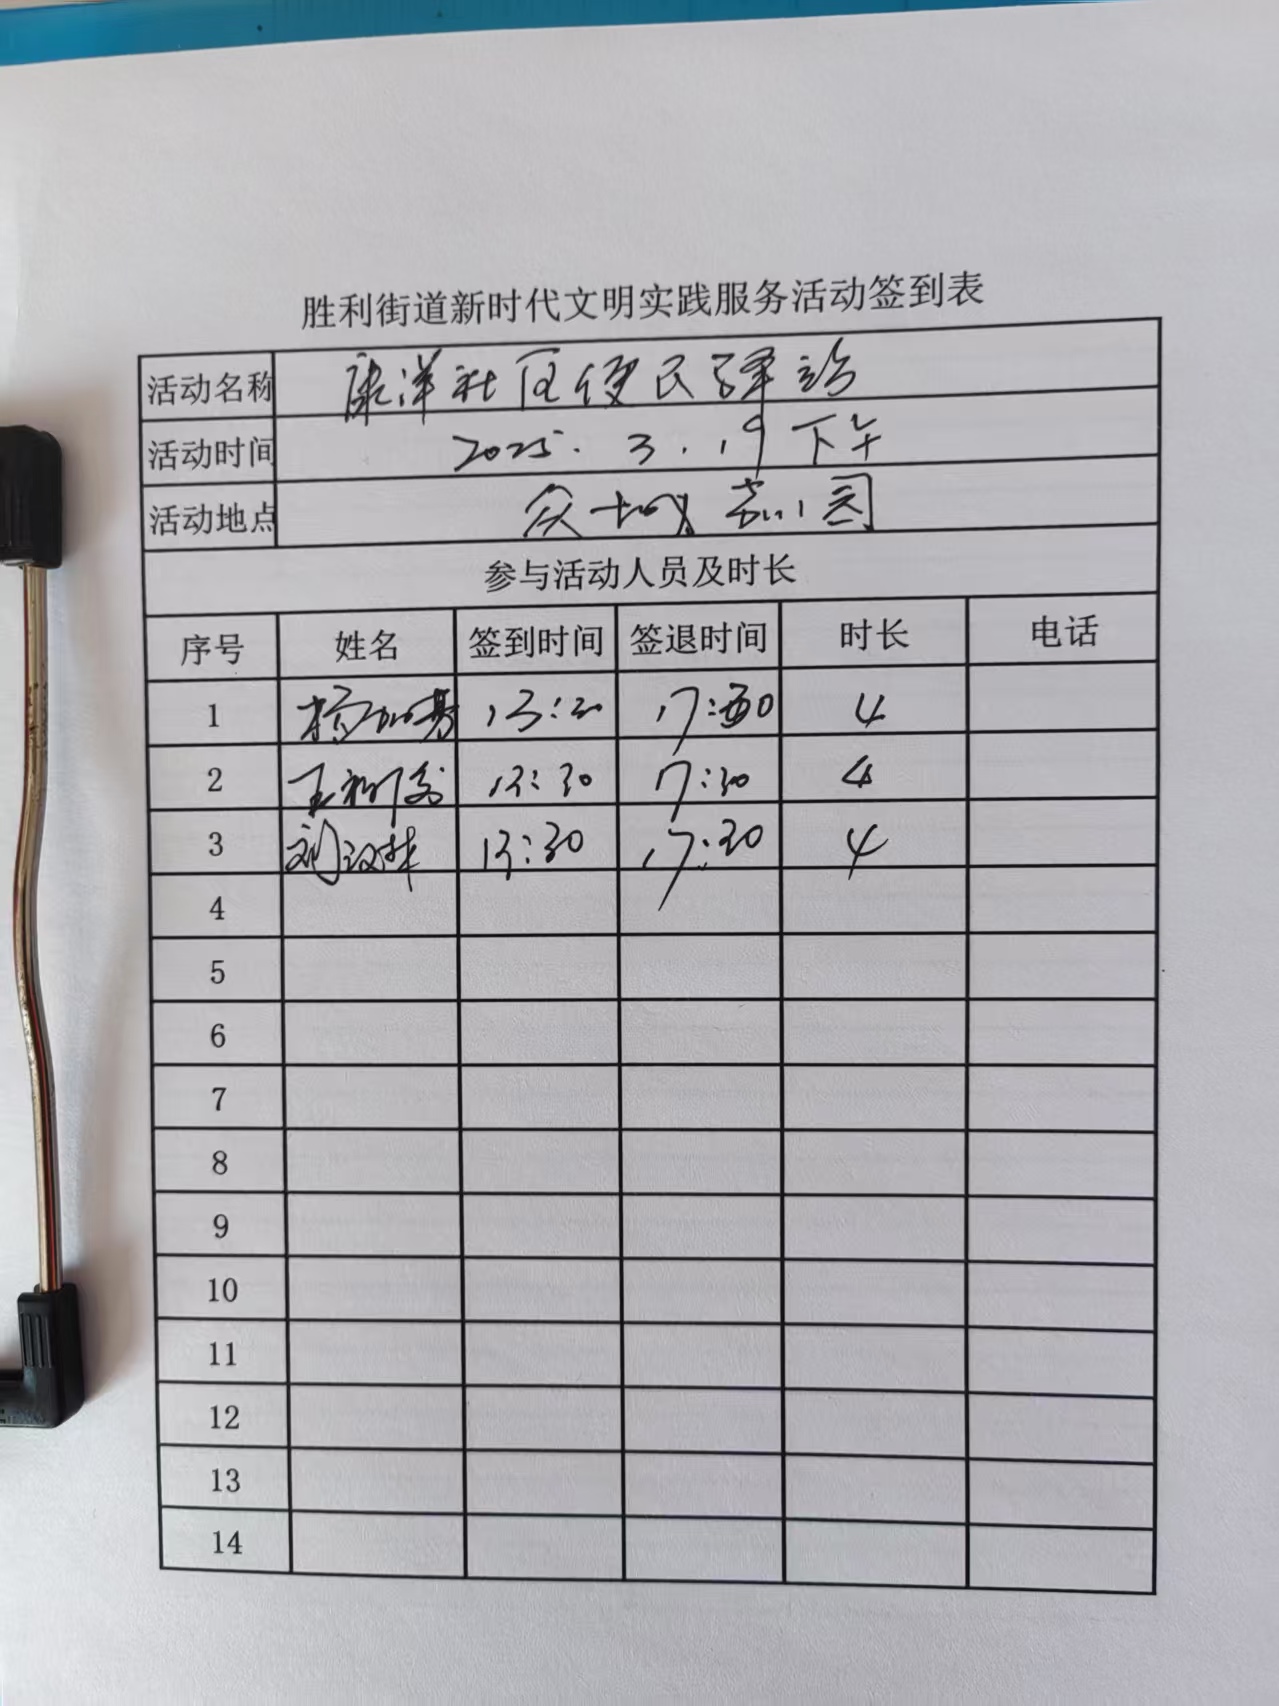 胜利街道新时代文明实践服务活动签到表
活动名称 康洋社区便民驿站
活动时间 2025.3.19下午
活动地点 众城嘉园
参与活动人员及时长
序号 姓名 签到时间 签退时间 时长 电话
1 13:30 17:30 4
2 王 13:30 17:30 4
3 刘汉林 13:30 17:30 4
4
5
6
7
8
9
10
11
12
13
14